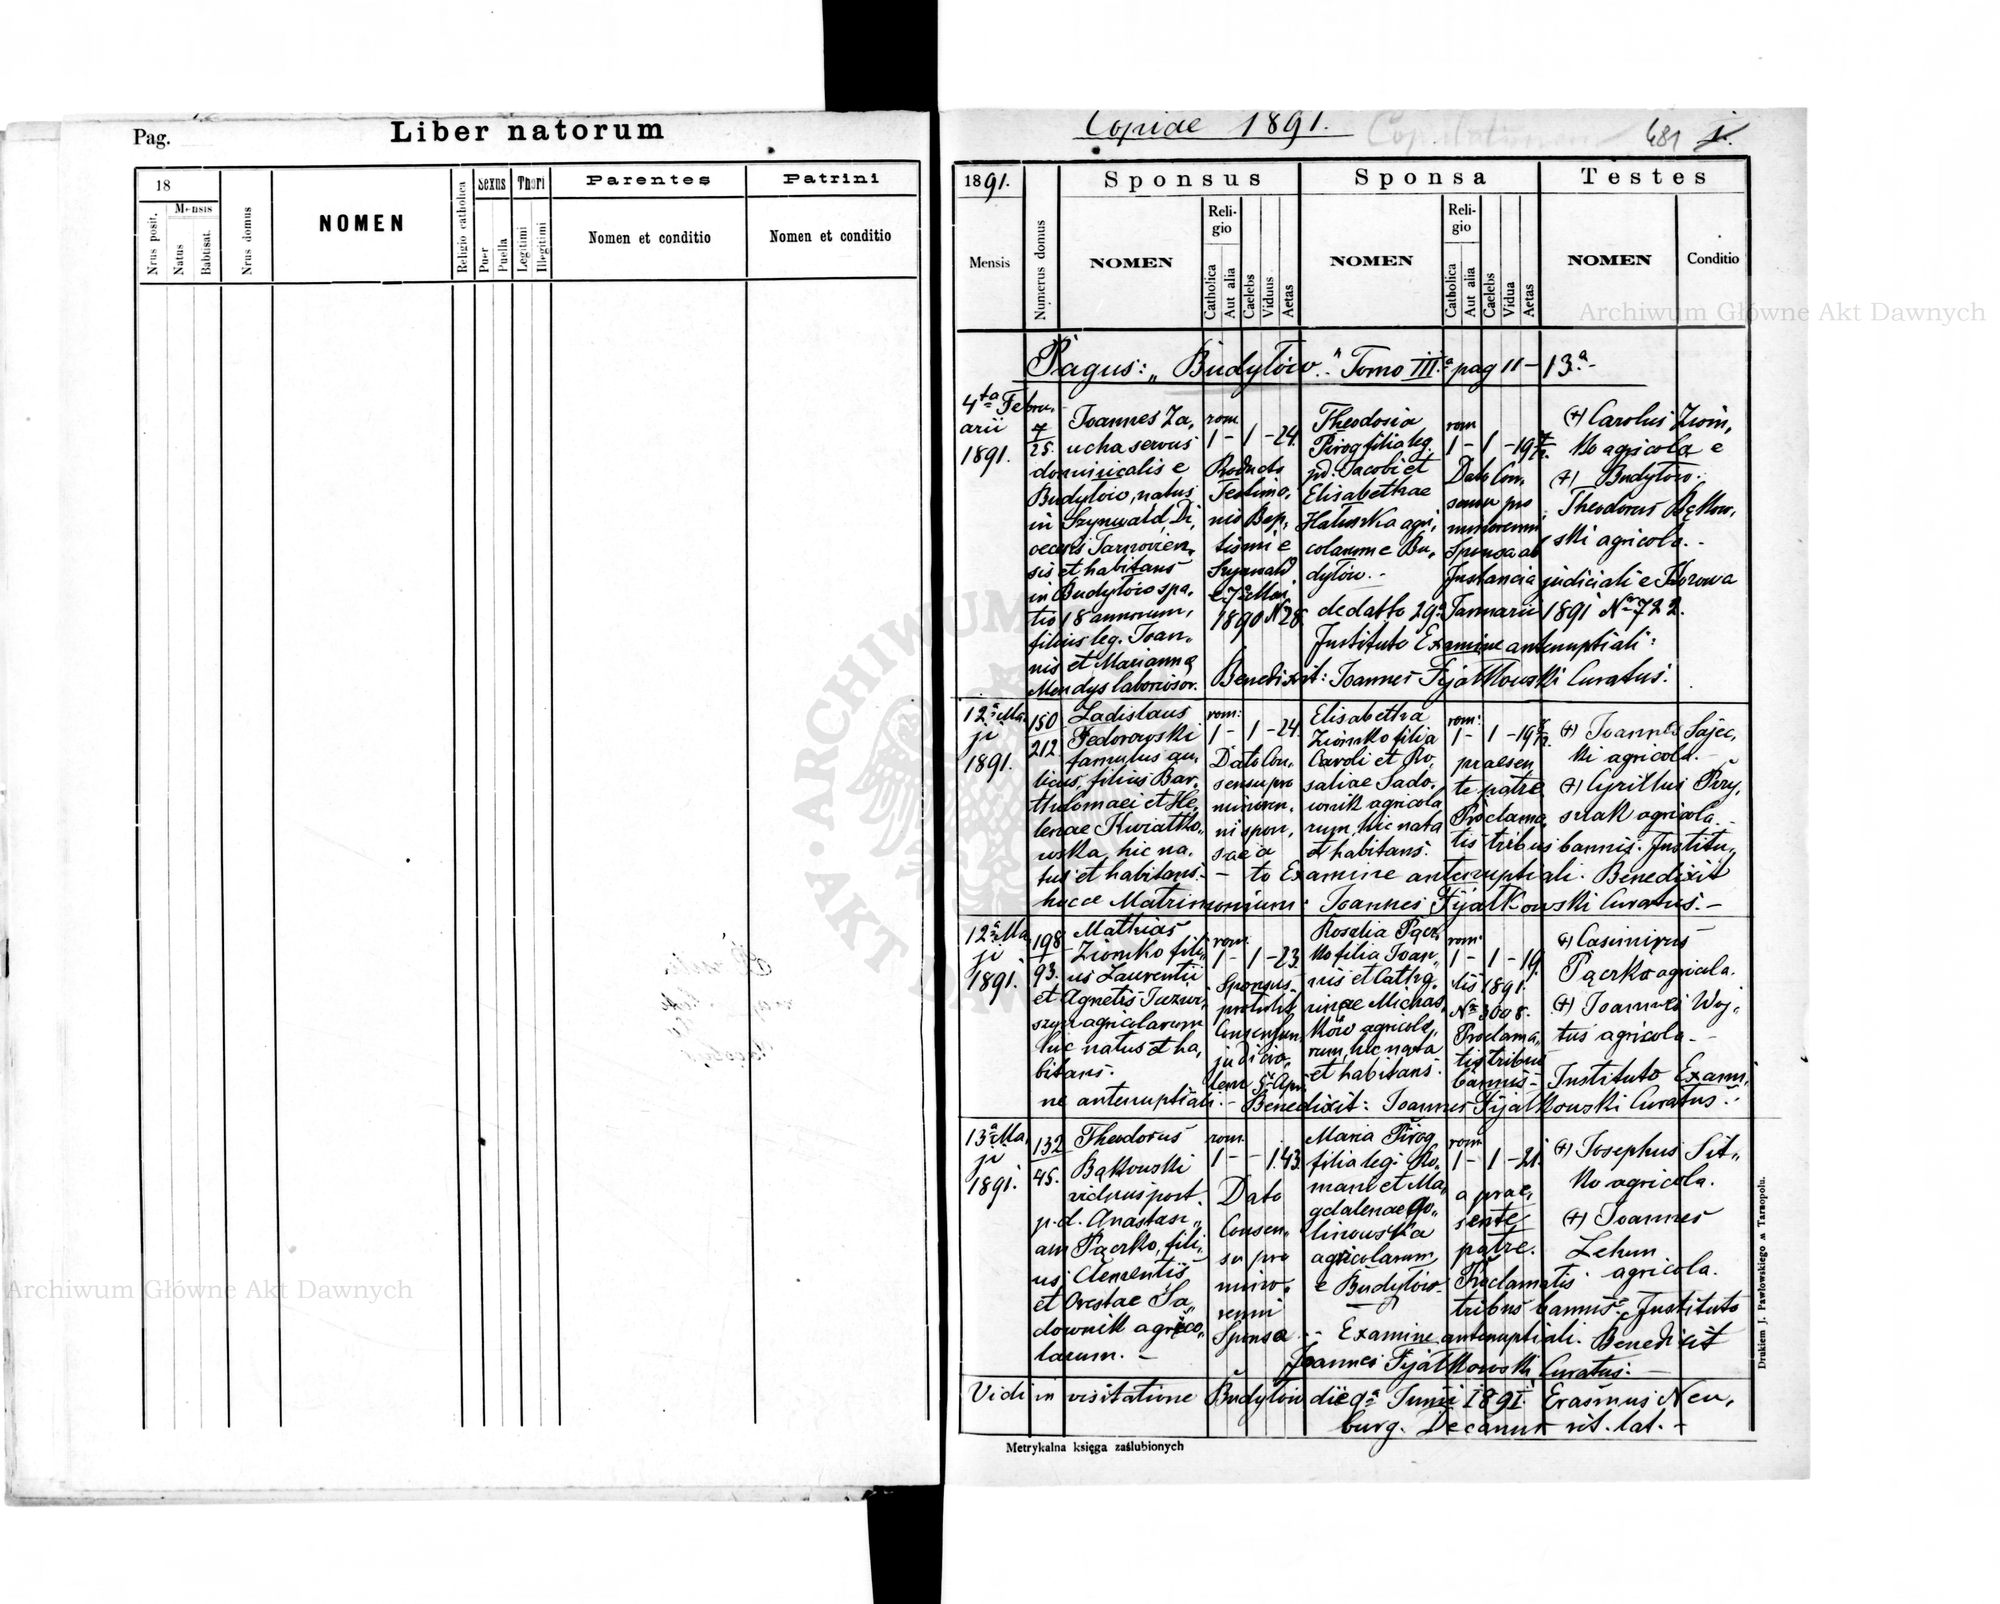 Pag.
Liber natorum
18
Mensis
Nrus posit.
Natus
Babtisat.
Nrus domus
NOMEN
Religio catholica
Sexus
Puer
Puella
Thori
Legitimi
Illegitimi
Parentes
Nomen et conditio
Patrini
Nomen et conditio
Copiae 1891.
481
1891.
Mensis
Numerus domus
Sponsus
NOMEN
Religio
Catholica
Aut alia
Caelebs
Viduus
Aetas
Sponsa
NOMEN
Religio
Catholica
Aut alia
Caelebs
Vidua
Aetas
Testes
NOMEN
Conditio
Pagus: „Budyłów." Tomo III.a pag 11 – 13.a
4ta Febru.
arii
1891.
7
25.
Joannes Za,
ucha servus
dominicalis e
Budyłów, natus
in Szynwałd, Di,
oecesis Tarnovien,
sis et habitans
in Budyłów spa,
tio 18 annorum,
filius leg. Joan,
nis et Marianna
Mendys laborioso.
rom.
1 – 1 – 24.
Producto
Testimo,
nio Bap,
tismi e
Szynwałd
1890 N 28.
Theodosia
Pirog filia leg.
pd. Jacobi et
Elisabethae
Hałuszka agri,
colarum e Bu,
dyłów. –
rom
1 – 1 – 19
Dato Con,
sensu pro
minorenni
Sponsa ab
Instancia judiciali e Kozowa
de datto 29a Januarii 1891 Nr 722.
Instituto Examine antenuptiali:
Benedixit: Joannes Fijałkowski Curatus.
(+) Carolus Ziom,
ko agricola e
(+) Budyłów.
Theodorus Bąkow,
ski agricola. –
12a Ma,
ji
1891.
150
212
Ladislaus
Fedorowski
famulus au,
licus, filius Bar,
tholomaei et He,
lenae Kwiatko,
wska, hic na,
tus et habitans. –
rom:
1 – 1 – 24.
Dato Con,
sensu pro
minoren,
ni spon,
sae a
Elisabetha
Ziomko filia
Caroli et Ro,
saliae Sado,
wnik agricola
rum, hic nata
et habitans.
rom:
1 – 1 – 19
praesen
te patre
Proclama,
tis tribus bannis. Institu,
to Examine antenuptiali. Benedixit
hocce Matrimonium: Joannes Fijałkowski Curatus. –
(+) Joannes Sajec,
ki agricola. –
(+) Cyrillus Przy,
szlak agricola. –
12a Ma,
ji
1891.
198
93.
Mathias
Ziomko fili,
us Laurentii
et Agnetis
agricolarum
huc natus et ha,
bitans.
rom.
1 – 1 – 23.
Sponsus
protulit
Consensum
judicia,
lem 5a Apri
Rosalia Pącz
ko filia Joan,
nis et Catha,
rinae Michas,
ków agricola,
rum, hic nata
et habitans.
rom:
1 – 1 – 19.
lis 1891.
Nr 3008.
Proclama,
tis tribus
bannis –
(+) Casimirus
Pączko agricola.
(+) Joannes Woj,
tus agricola. –
Instituto Exami,
ne antenuptiali. – Benedixit: Joannes Fijałkowski Curatus. –
13a Ma,
ji
1891.
132
45.
Theodorus
Bąkowski
viduus post
p.d. Anastasi,
am Pączko, fili,
us Clementis
et Orestae Sa,
downik agrico,
larum. –
rom.
1 – – 1.43.
Dato
Consen,
su pro
mino,
renni
Sponsa
Maria Pirog
filia leg. Ro,
mani et Ma,
gdalenae Go,
linowska
agricolarum
e Budyłów.
rom
1 – 1 – 21.
a prae,
sente
patre.
Proclamatis
tribus bannis. Instituto
Examine antenuptiali. Benedixit
Joannes Fijałkowski Curatus. –
(+) Josephus Sit,
ko agricola.
(+) Joannes
Lehun
agricola.
Vidi in visitatione Budyłów die 9a Junii 1891. Erasmus Neu,
burg. Decanus rit. lat. –
Metrykalna księga zaślubionych
Drukiem J. Pawłowskiego w Tarnopolu.
Archiwum Główne Akt Dawnych
Archiwum Główne Akt Dawnych
ARCHIWUM
AKT DAW